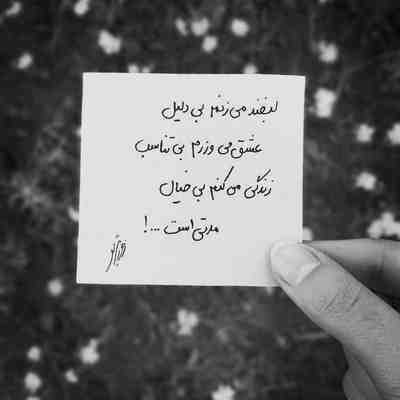 لبخند می زنم بی دلیل
عشق می ورزم بی تناسب
زندگی می کنم بی خیال
مدتی است ...!